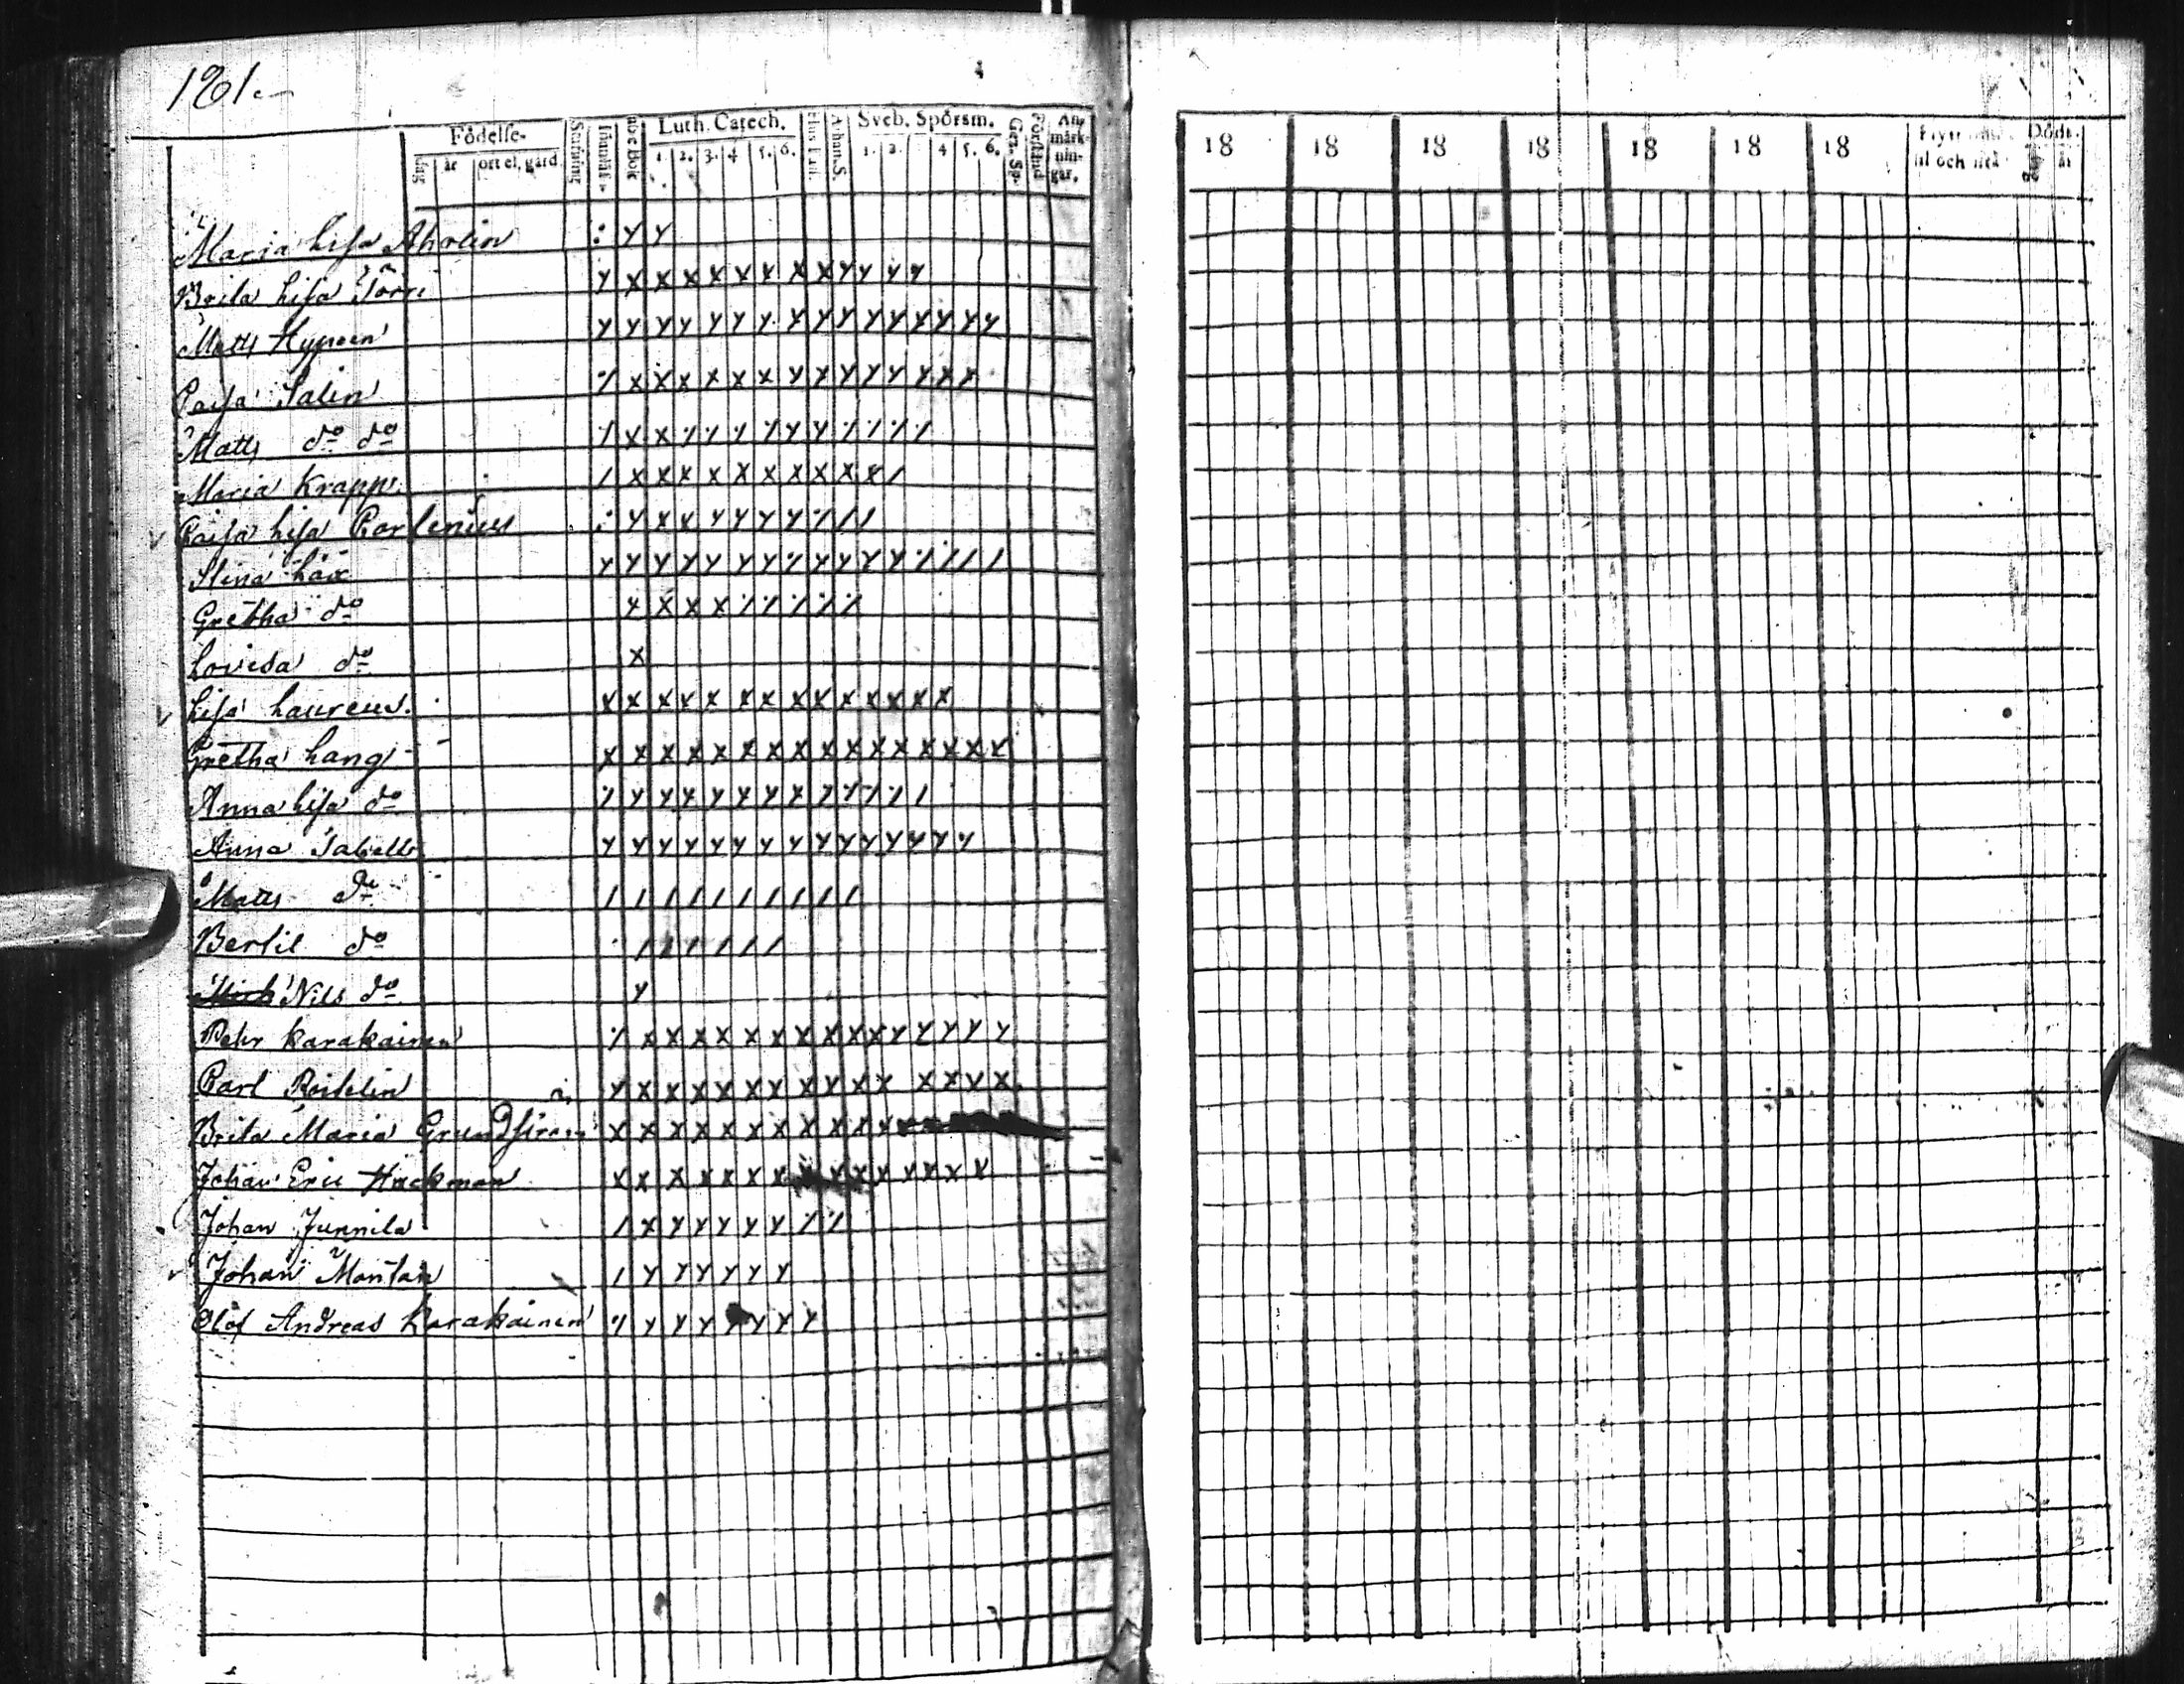 181.
Födelse-
dag år ort el. gård
Stafning
Innanläs.
abc Bok
Luth. Catech.
1. 2. 3. 4 5. 6.
Hust.
Athan. S.
Sveb. Spörsm.
1. 2. 4 5. 6.
Ger. Sp.
Förstånd
An märk nin- gar.
Maria Lisa Aholin
Brita Lisa Törri
Matts Hypoen
Caisa Salin
Matts do do
Maria Krapp
Caisa Lisa Carlenius
Stina
Gretha do
Lovisa do
Lisa Laureus.
Gretha Lang
Anna Lisa do
Anna Sabell
Matts do
Bertil do
Nils do
Pehr Karakainen
Carl
Brita Maria Grundström
Johan Eric Hackman
Johan Junnila
Johan Montan
Olof Andreas Karakainen
18 18 18 18 18 18 18
til och ifrå
Död.
år